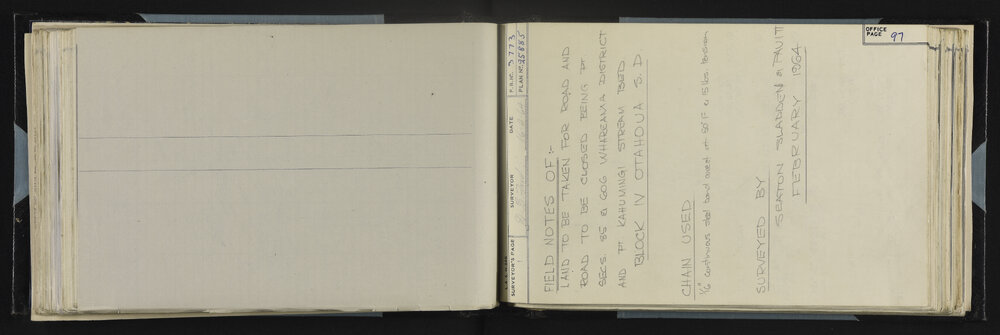 OFFICE PAGE 97
F.B. Nº. 3773
PLAN Nº. 25885
DATE
SURVEYOR
SURVEYOR'S PAGE 1
FIELD NOTES OF :-
LAND TO BE TAKEN FOR ROAD AND
ROAD TO BE CLOSED BEING PT
SECS. 85 & GOG WHAREAMA DISTRICT
AND PT. KAHUMINGI STREAM BED
BLOCK IV OTAHOUA S. D
CHAIN USED
1/16" Continuous steel band correct at 59°F & 15 lbs. tension
SURVEYED BY
SEATON SLADDEN & PAVITT
FEBRUARY 1964